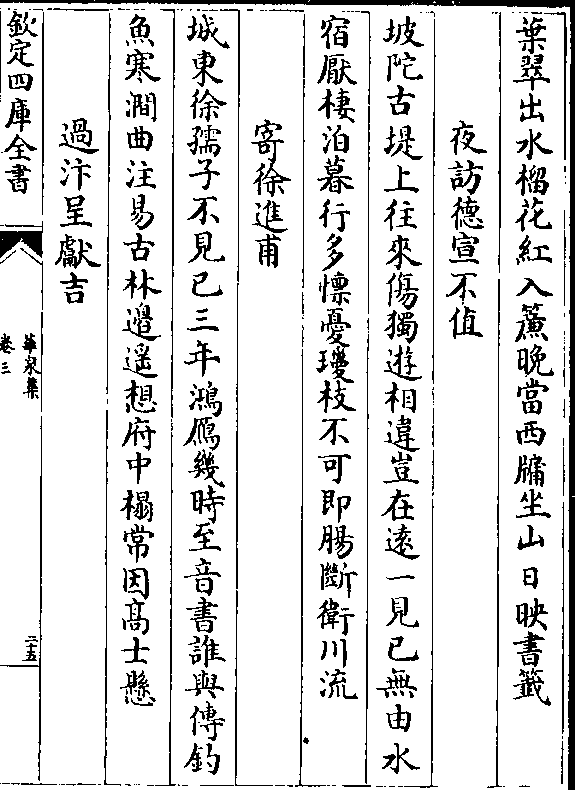 葉翠出水榴花紅入簾晚當西牖坐山日映書籤
夜訪德宣不值
坡陀古堤上往來傷獨遊相違豈在遠一見已無由水
宿厭棲泊暮行多懔憂瓊枝不可即腸斷衛川流
寄徐進甫
城東徐孺子不見已三年鴻鴈幾時至音書誰與傳釣
魚寒澗曲注易古林邉遥想府中榻常因髙士懸
過汴呈獻吉
欽定四庫全書
華泉集
卷三
二十五